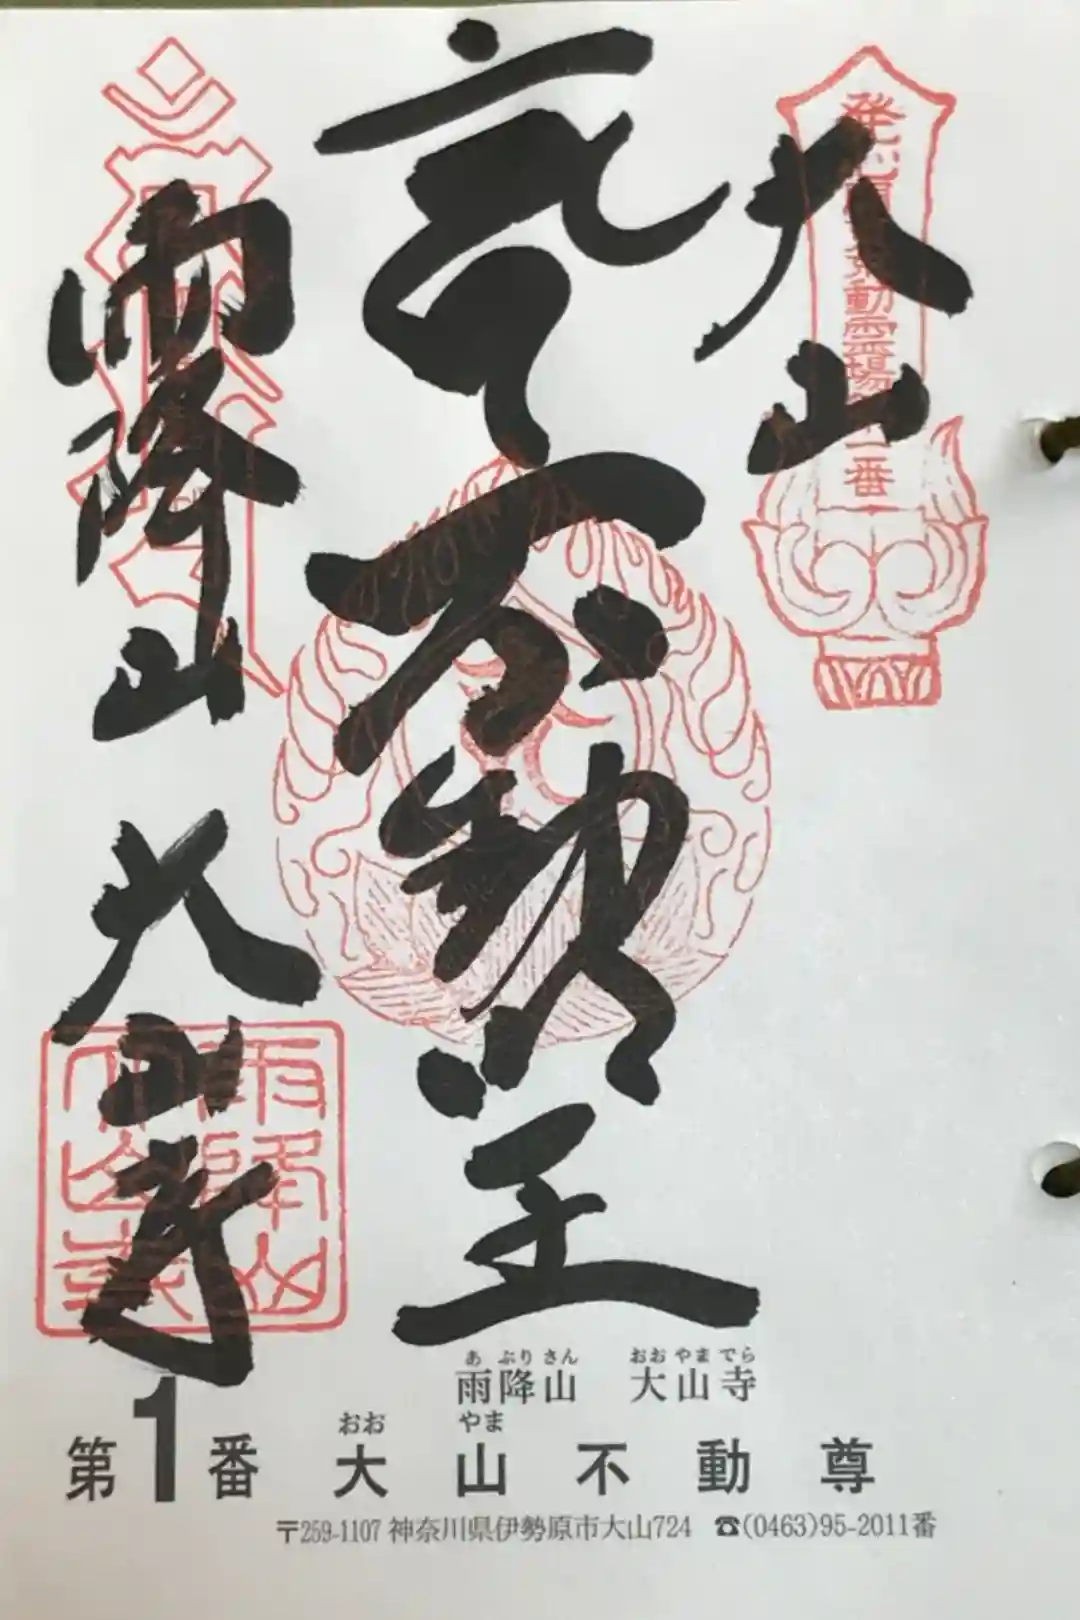 大山
不動明王
雨降山
大山寺
あぶりさん おおやまでら
雨降山 大山寺
おお やま
第1番 大山不動尊
〒259-1107 神奈川県伊勢原市大山724 ☎(0463)95-2011番